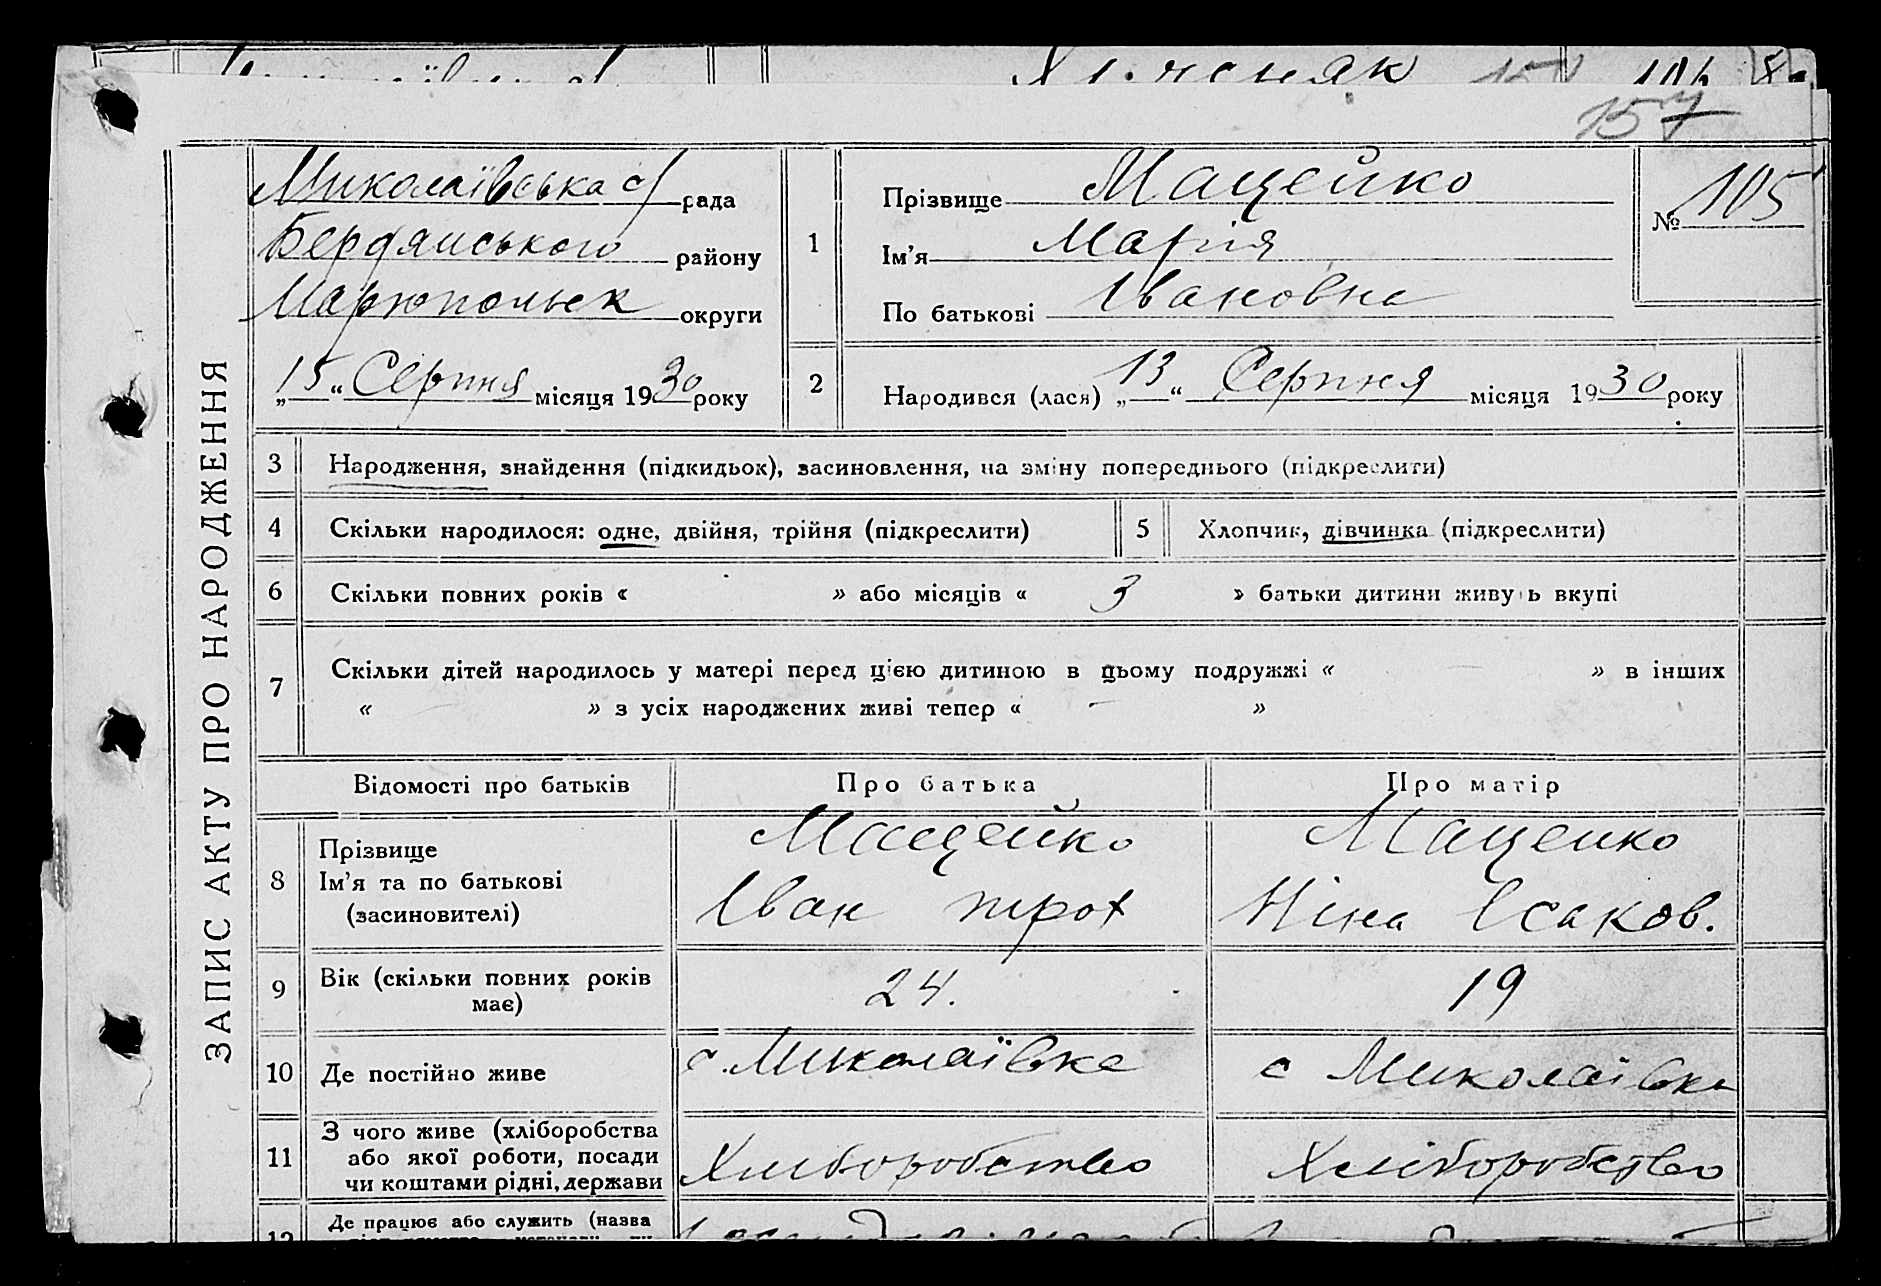 157
ЗАПИС АКТУ ПРО НАРОДЖЕННЯ
Миколаївська с/ рада
Бердянського району
Марюпольск округи
„15“ Серпня місяця 1930 року
1
Прізвище Мацейко
Ім'я Марія
По батькові Івановна
№ 105
2
Народився (лася) „13“ Серпня місяця 1930 року
3 Народження, знайдення (підкидьок), засиновлення, на зміну попереднього (підкреслити)
4 Скільки народилося: одне, двійня, трійня (підкреслити)
5 Хлопчик, дівчинка (підкреслити)
6 Скільки повних років « » або місяців « 3 » батьки дитини живуть вкупі
7 Скільки дітей народилось у матері перед цією дитиною в цьому подружжі « — » в інших
« — » з усіх народжених живі тепер « — »
Відомості про батьків Про батька Про матір
8 Прізвище
Ім'я та по батькові
(засиновителі)
Мацейко
Іван трох
Маценко
Ніна Ісаков.
9 Вік (скільки повних років
має)
24. 19
10 Де постійно живе с. Миколаївка с Миколаївка
11 З чого живе (хліборобства
або якої роботи, посади
чи коштами рідні, держави
Хлиборобство Хліборобство
12 Де працює або служить (назва